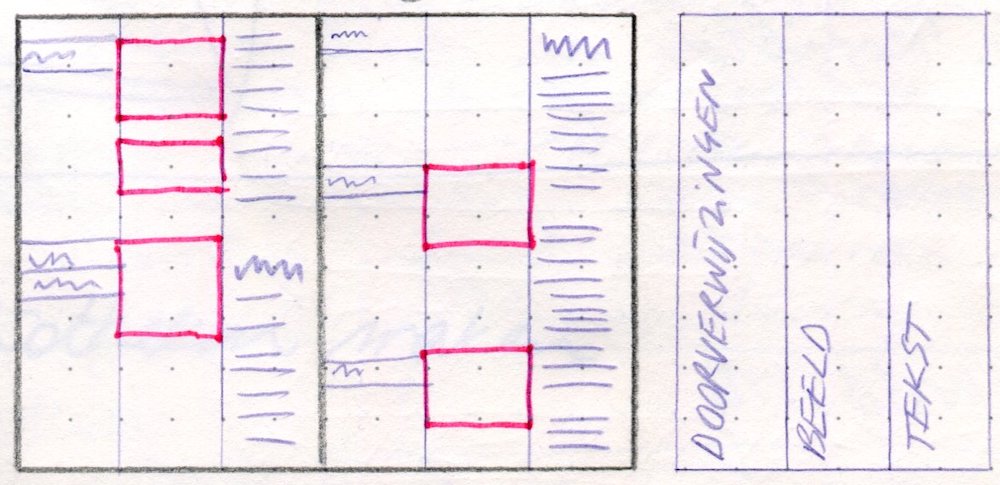 DOORVERWIJZINGEN
BEELD
TEKST